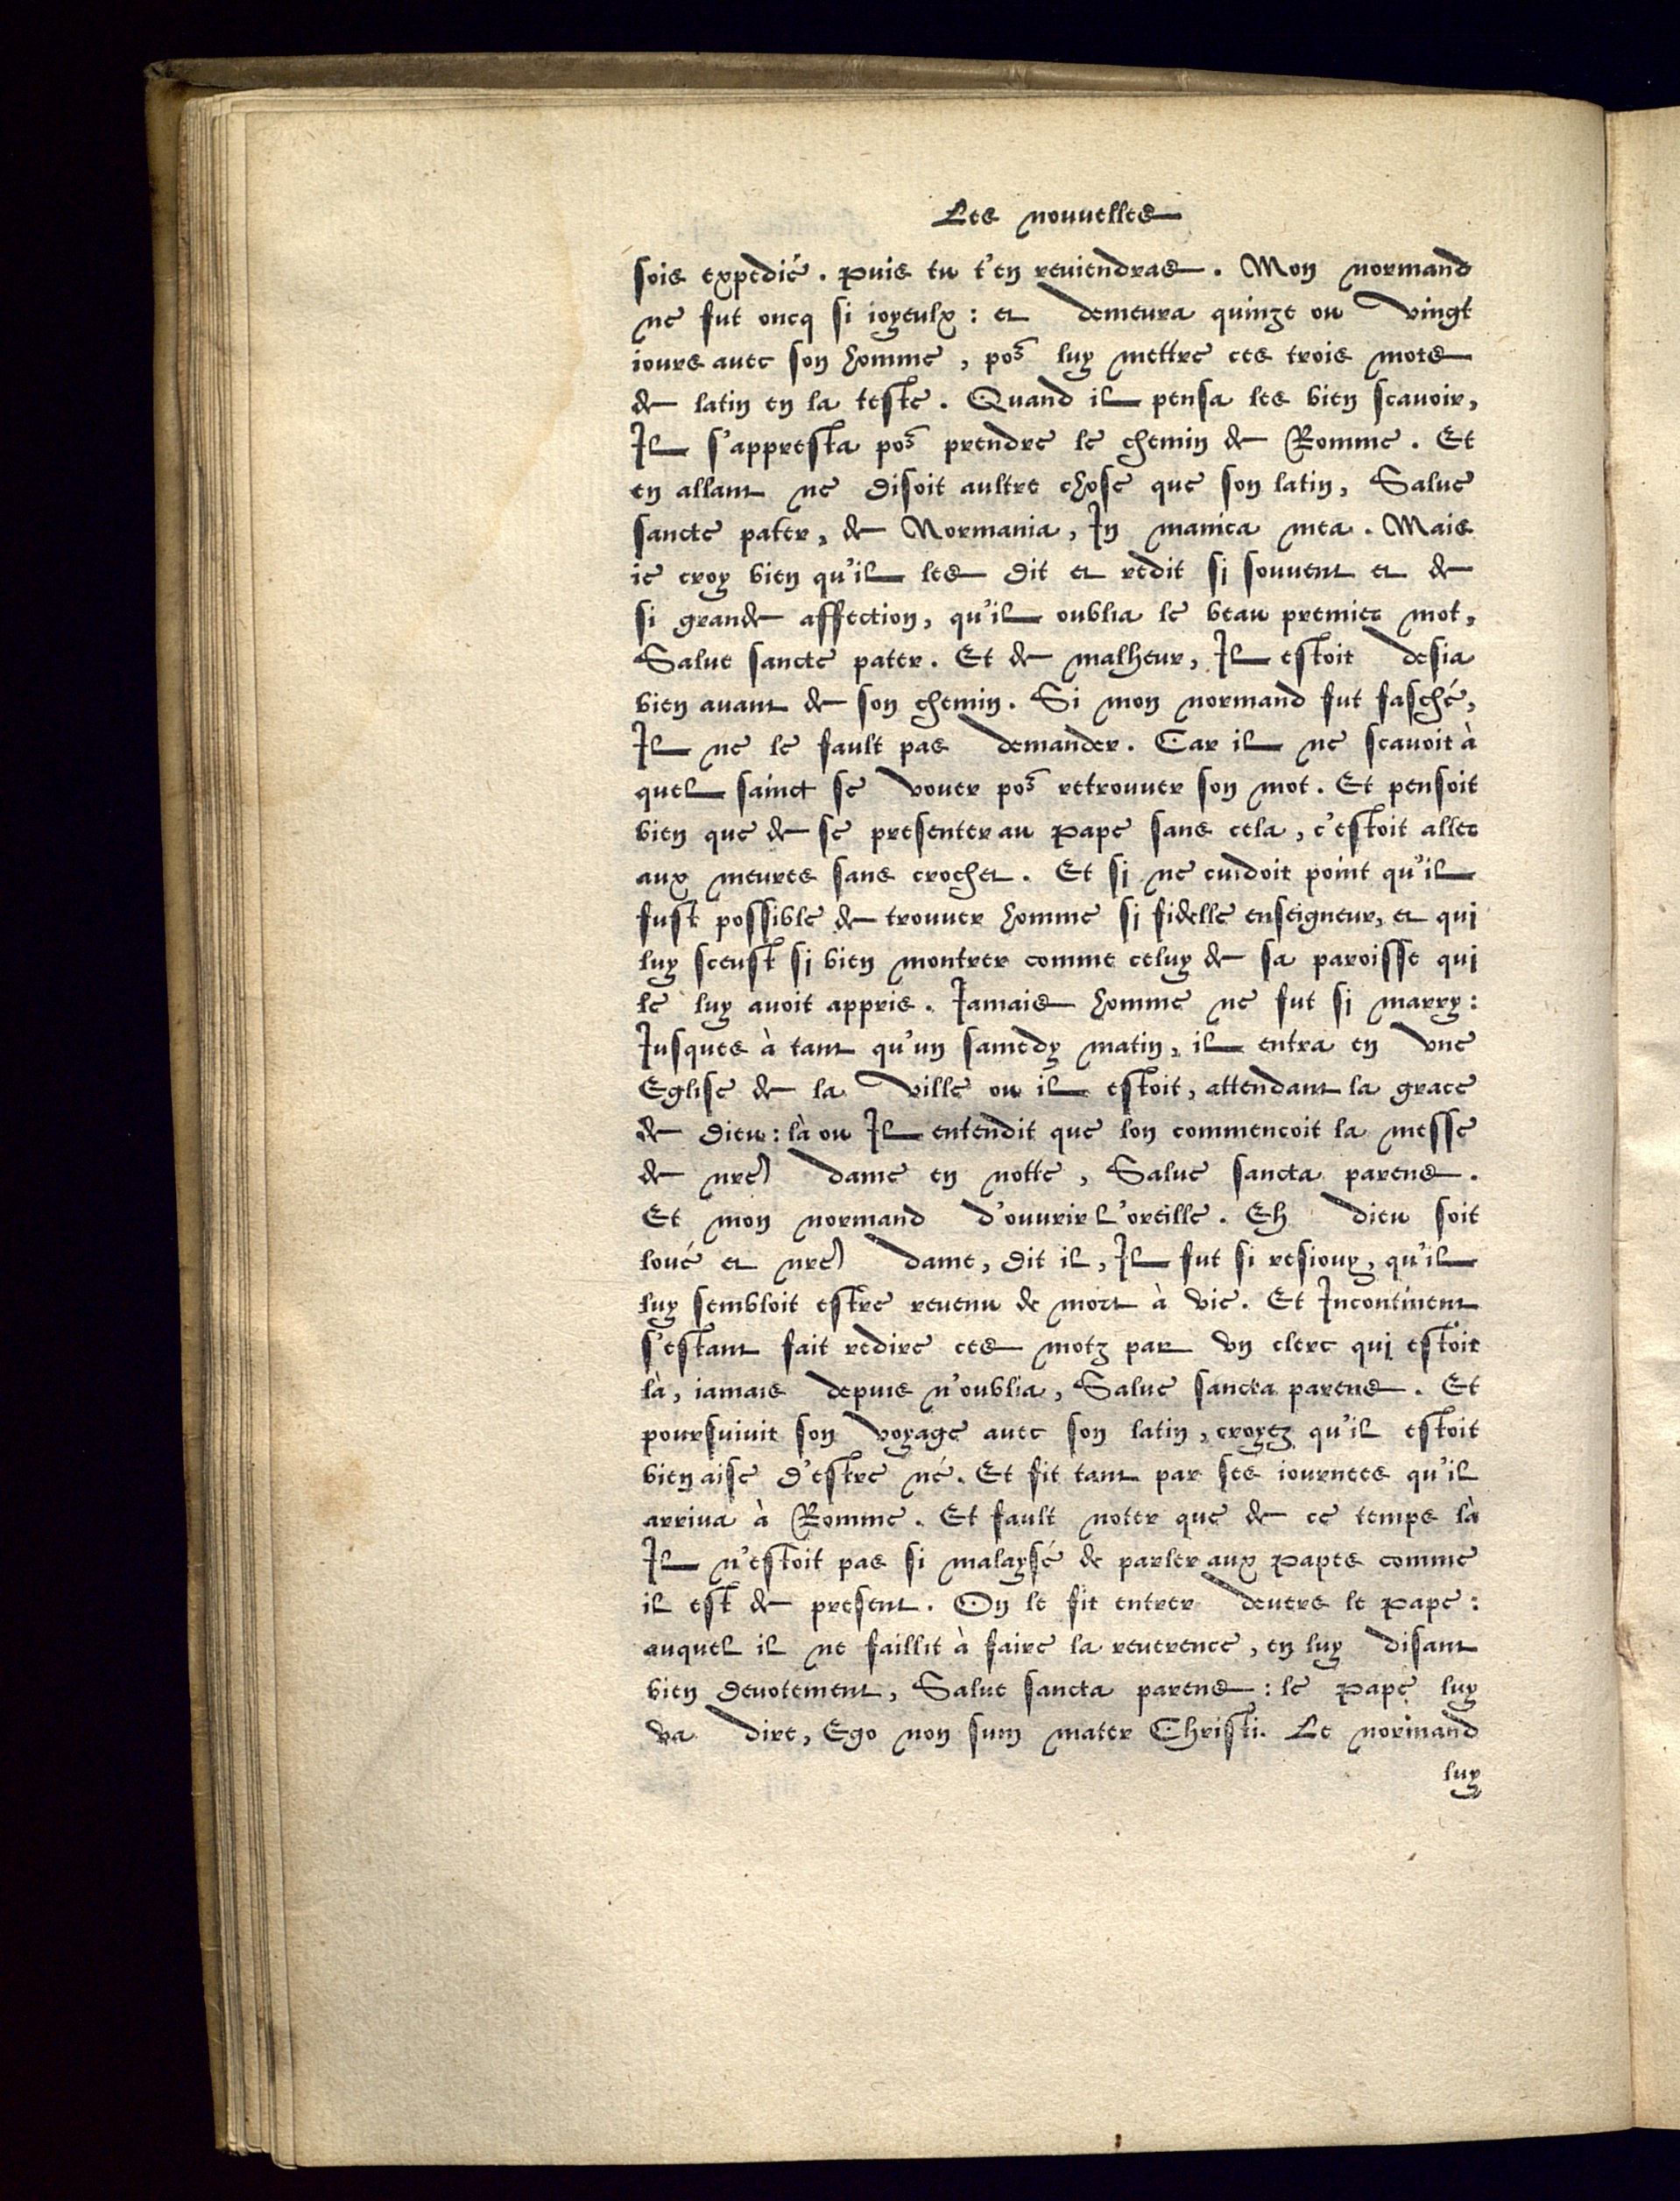 Les nouuelles
sois expedié. Puis tu t'en reuiendras. Mon normand
ne fut oncq si ioyeulx : et demeura quinze ou vingt
iours auec son homme, po᷒ luy mettre ces trois mots
de latin en la teste. Quand il pensa les bien scauoir,
Il s'appresta po᷒ prendre le chemin de Romme. Et
en allant ne disoit aultre chose que son latin, Salue
sancte pater, de Normania, In manica mea. Mais
ie croy bien qu'il les dit et redit si souuent et de
si grande affection, qu'il oublia le beau premier mot,
Salue sancte pater. Et de malheur, Il estoit desia
bien auant de son chemin. Si mon normand fut fasché,
Il ne le fault pas demander. Car il ne scauoit à
quel sainct se vouer po᷒ retrouuer son mot. Et pensoit
bien que de se presenter au Pape sans cela, c'estoit aller
aux meures sans crochet. Et si ne cuidoit point qu'il
fust possible de trouuer homme si fidelle enseigneur, et qui
luy sceust si bien montrer comme celuy de sa paroisse qui
le luy auoit appris. Iamais homme ne fut si marry :
Iusques à tant qu'un samedy matin, il entra en vne
Eglise de la ville ou il estoit, attendant la grace
de Dieu : là ou Il entendit que lon commencoit la messe
de nre dame en notte, Salue sancta parens.
Et mon normand d'ouurir l'oreille. Eh dieu soit
loué et nre dame, dit il, Il fut si resiouy, qu'il
luy sembloit estre reuenu de mort à vie. Et Incontinent
s'estant fait redire ces motz par vn clerc qui estoit
là, iamais depuis n'oublia, Salue sancta parens. Et
poursuiuit son voyage auec son latin, croyez qu'il estoit
bien aise d'estre né. Et fit tant par ses iournees qu'il
arriua à Romme. Et fault noter que de ce temps là
Il n'estoit pas si malaysé de parler aux Papes comme
il est de present. On le fit entrer deuers le Pape :
auquel il ne faillit à faire la reuerence, en luy disant
bien deuotement, Salue sancta parens : le Pape luy
va dire, Ego non sum mater Christi. Le normand
luy